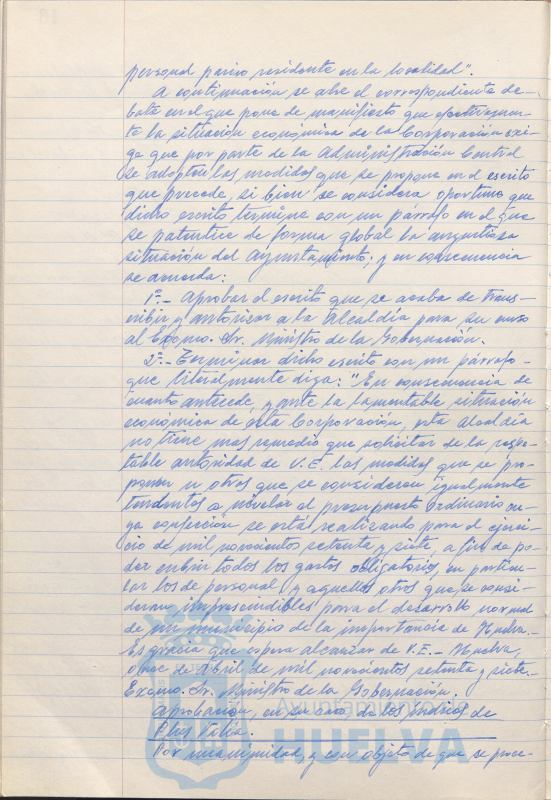 personal pasivo residente en la localidad".
A continuación se abre el correspondiente de-
bate en el que pone de manifiesto que efectivamen-
te la situación económica de la Corporación exi-
ge que por parte de la Administración Central
se adopten las medidas que se propone en el escrito
que precede, si bien se considera oportuno que
dicho escrito termine con un párrafo en el que
se patentice de forma global la angustiosa
situación del Ayuntamiento; y en consecuencia
se acuerda:
1º.- Aprobar el escrito que se acaba de trans-
cribir y autorizar a la Alcaldía para su curso
al Excmo. Sr. Ministro de la Gobernación.
2º.- Terminar dicho escrito con un párrafo
que literalmente diga: "En consecuencia de
cuanto antecede, y ante la lamentable situación
económica de esta Corporación, esta Alcaldía
no tiene mas remedio que solicitar de la respe-
table autoridad de V.E. las medidas que se pro-
ponen u otras que se consideren igualmente
tendentes a nivelar el presupuesto ordinario cu-
ya confección se está realizando para el ejerci-
cio de mil novecientos setenta y siete, a fin de po-
der cubrir todos los gastos obligatorios, en particu-
lar los de personal, y aquellos otros que se consi-
deran imprescindibles para el desarrollo normal
de un municipio de la importancia de Huelva.
Es gracia que espera alcanzar de V.E.- Huelva,
de Abril de mil novecientos setenta y siete.-
Excmo. Sr. Ministro de la Gobernación.
Aprobación, en su caso, de los padrones de
Plus Valía.
Por unanimidad y con objeto de que se proce-
Ayuntamiento de
HUELVA